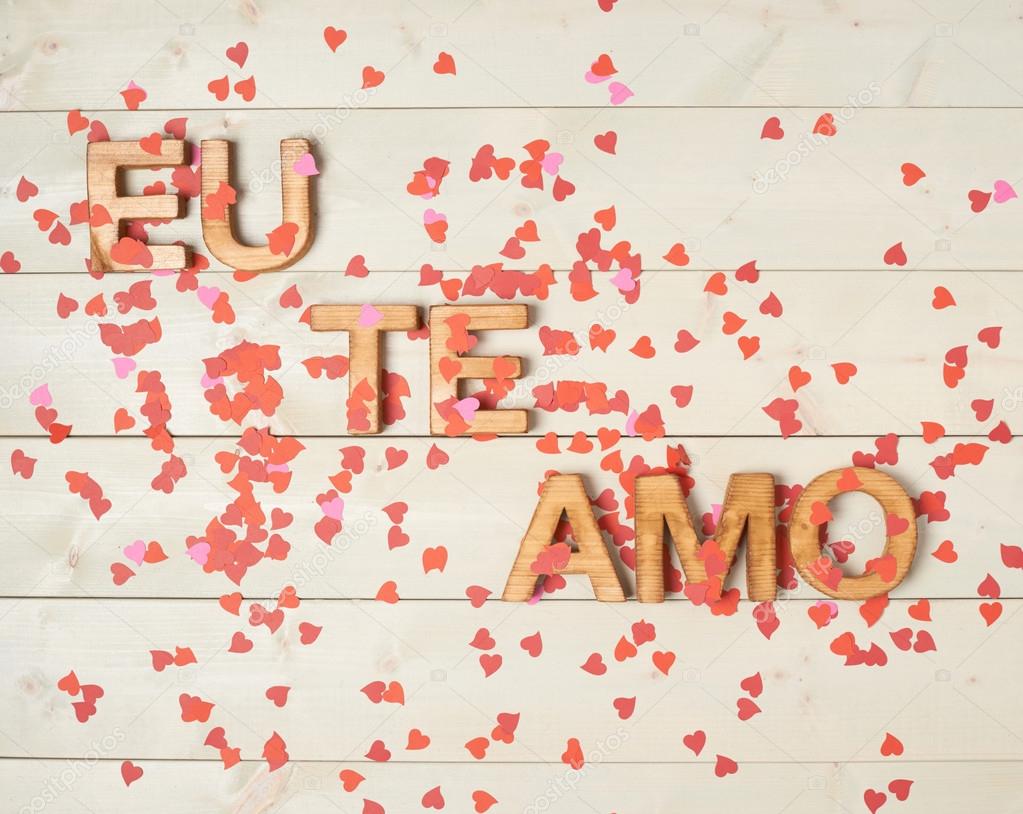 EU
TE
AMO
depositphotos